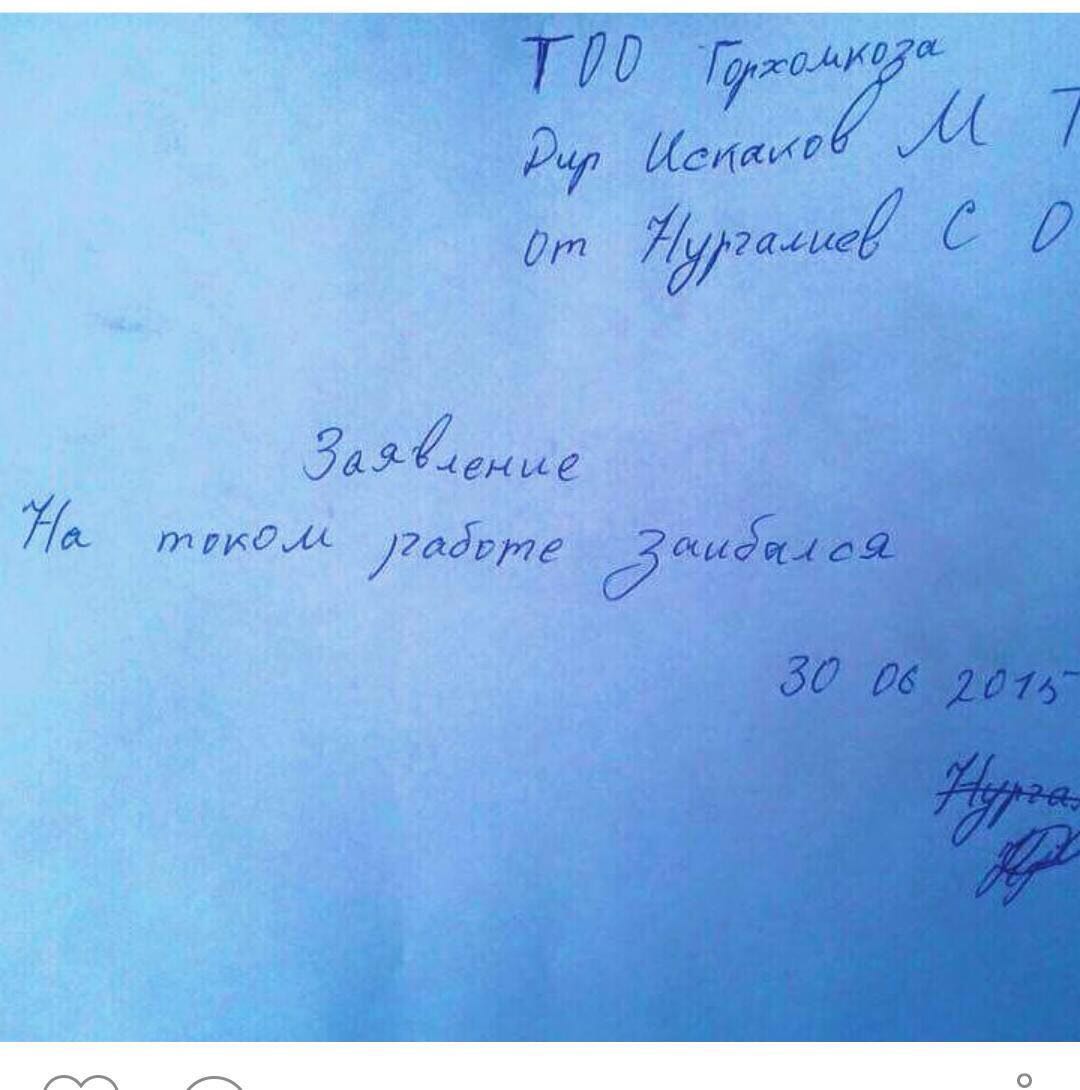 ТОО Горхомкоза
Дир Искаков М Т
от Нургалиев С О
Заявление
На током работе Заибался
30 06 2015
Нургал